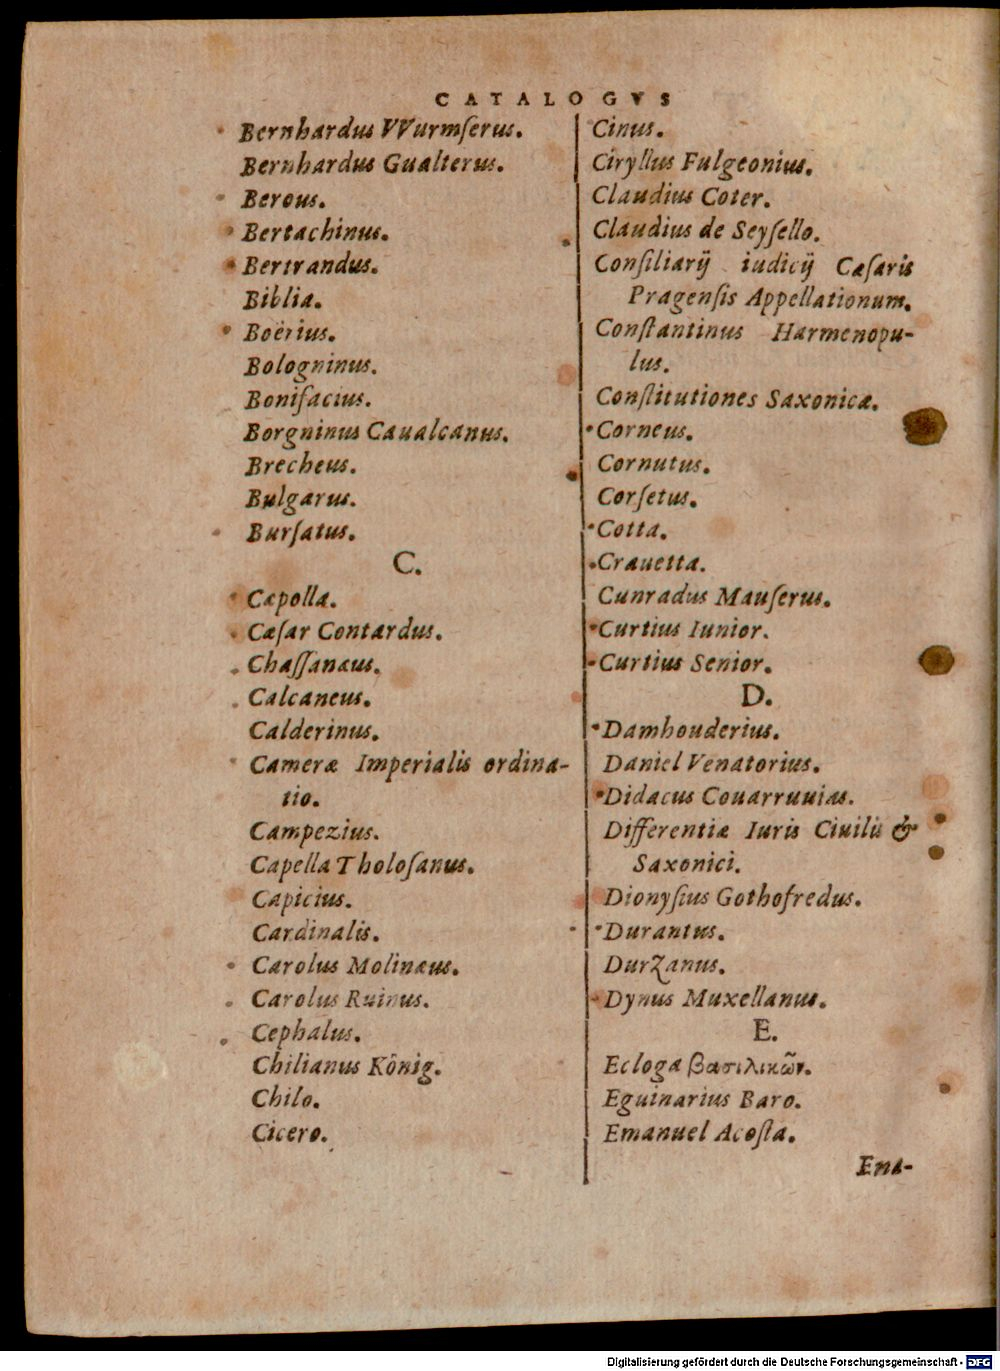 CATALOGVS
Bernhardus VVurmſerus.
Bernhardus Gualterus.
Berous.
Bertachinus.
Bertrandus.
Biblia.
Boërius.
Bologninus.
Bonifacius.
Borgninus Caualcanus.
Brecheus.
Bulgarus.
Burſatus.
C.
Cæpolla.
Cæſar Contardus.
Chaſſanæus.
Calcaneus.
Calderinus.
Cameræ Imperialis ordina-
tio.
Campezius.
Capella Tholoſanus.
Capicius.
Cardinalis.
Carolus Molinæus.
Carolus Ruinus.
Cephalus.
Chilianus König.
Chilo.
Cicero.
Cinus.
Ciryllus Fulgeonius.
Claudius Coter.
Claudius de Seyſello.
Conſiliarij iudicij Cæſaris
Pragenſis Appellationum.
Conſtantinus Harmenopu-
lus.
Conſtitutiones Saxonicæ.
Corneus.
Cornutus.
Corſetus.
Cotta.
Crauetta.
Cunradus Mauſerus.
Curtius Iunior.
Curtius Senior.
D.
Damhouderius.
Daniel Venatorius.
Didacus Couarruuias.
Differentiæ Iuris Ciuilis &
Saxonici.
Dionyſius Gothofredus.
Durantus.
Durzanus.
Dynus Muxellanus.
E.
Ecloga βασιλικῶν.
Eguinarius Baro.
Emanuel Acoſta.
Ena-
Digitalisierung gefördert durch die Deutsche Forschungsgemeinschaft - DFG